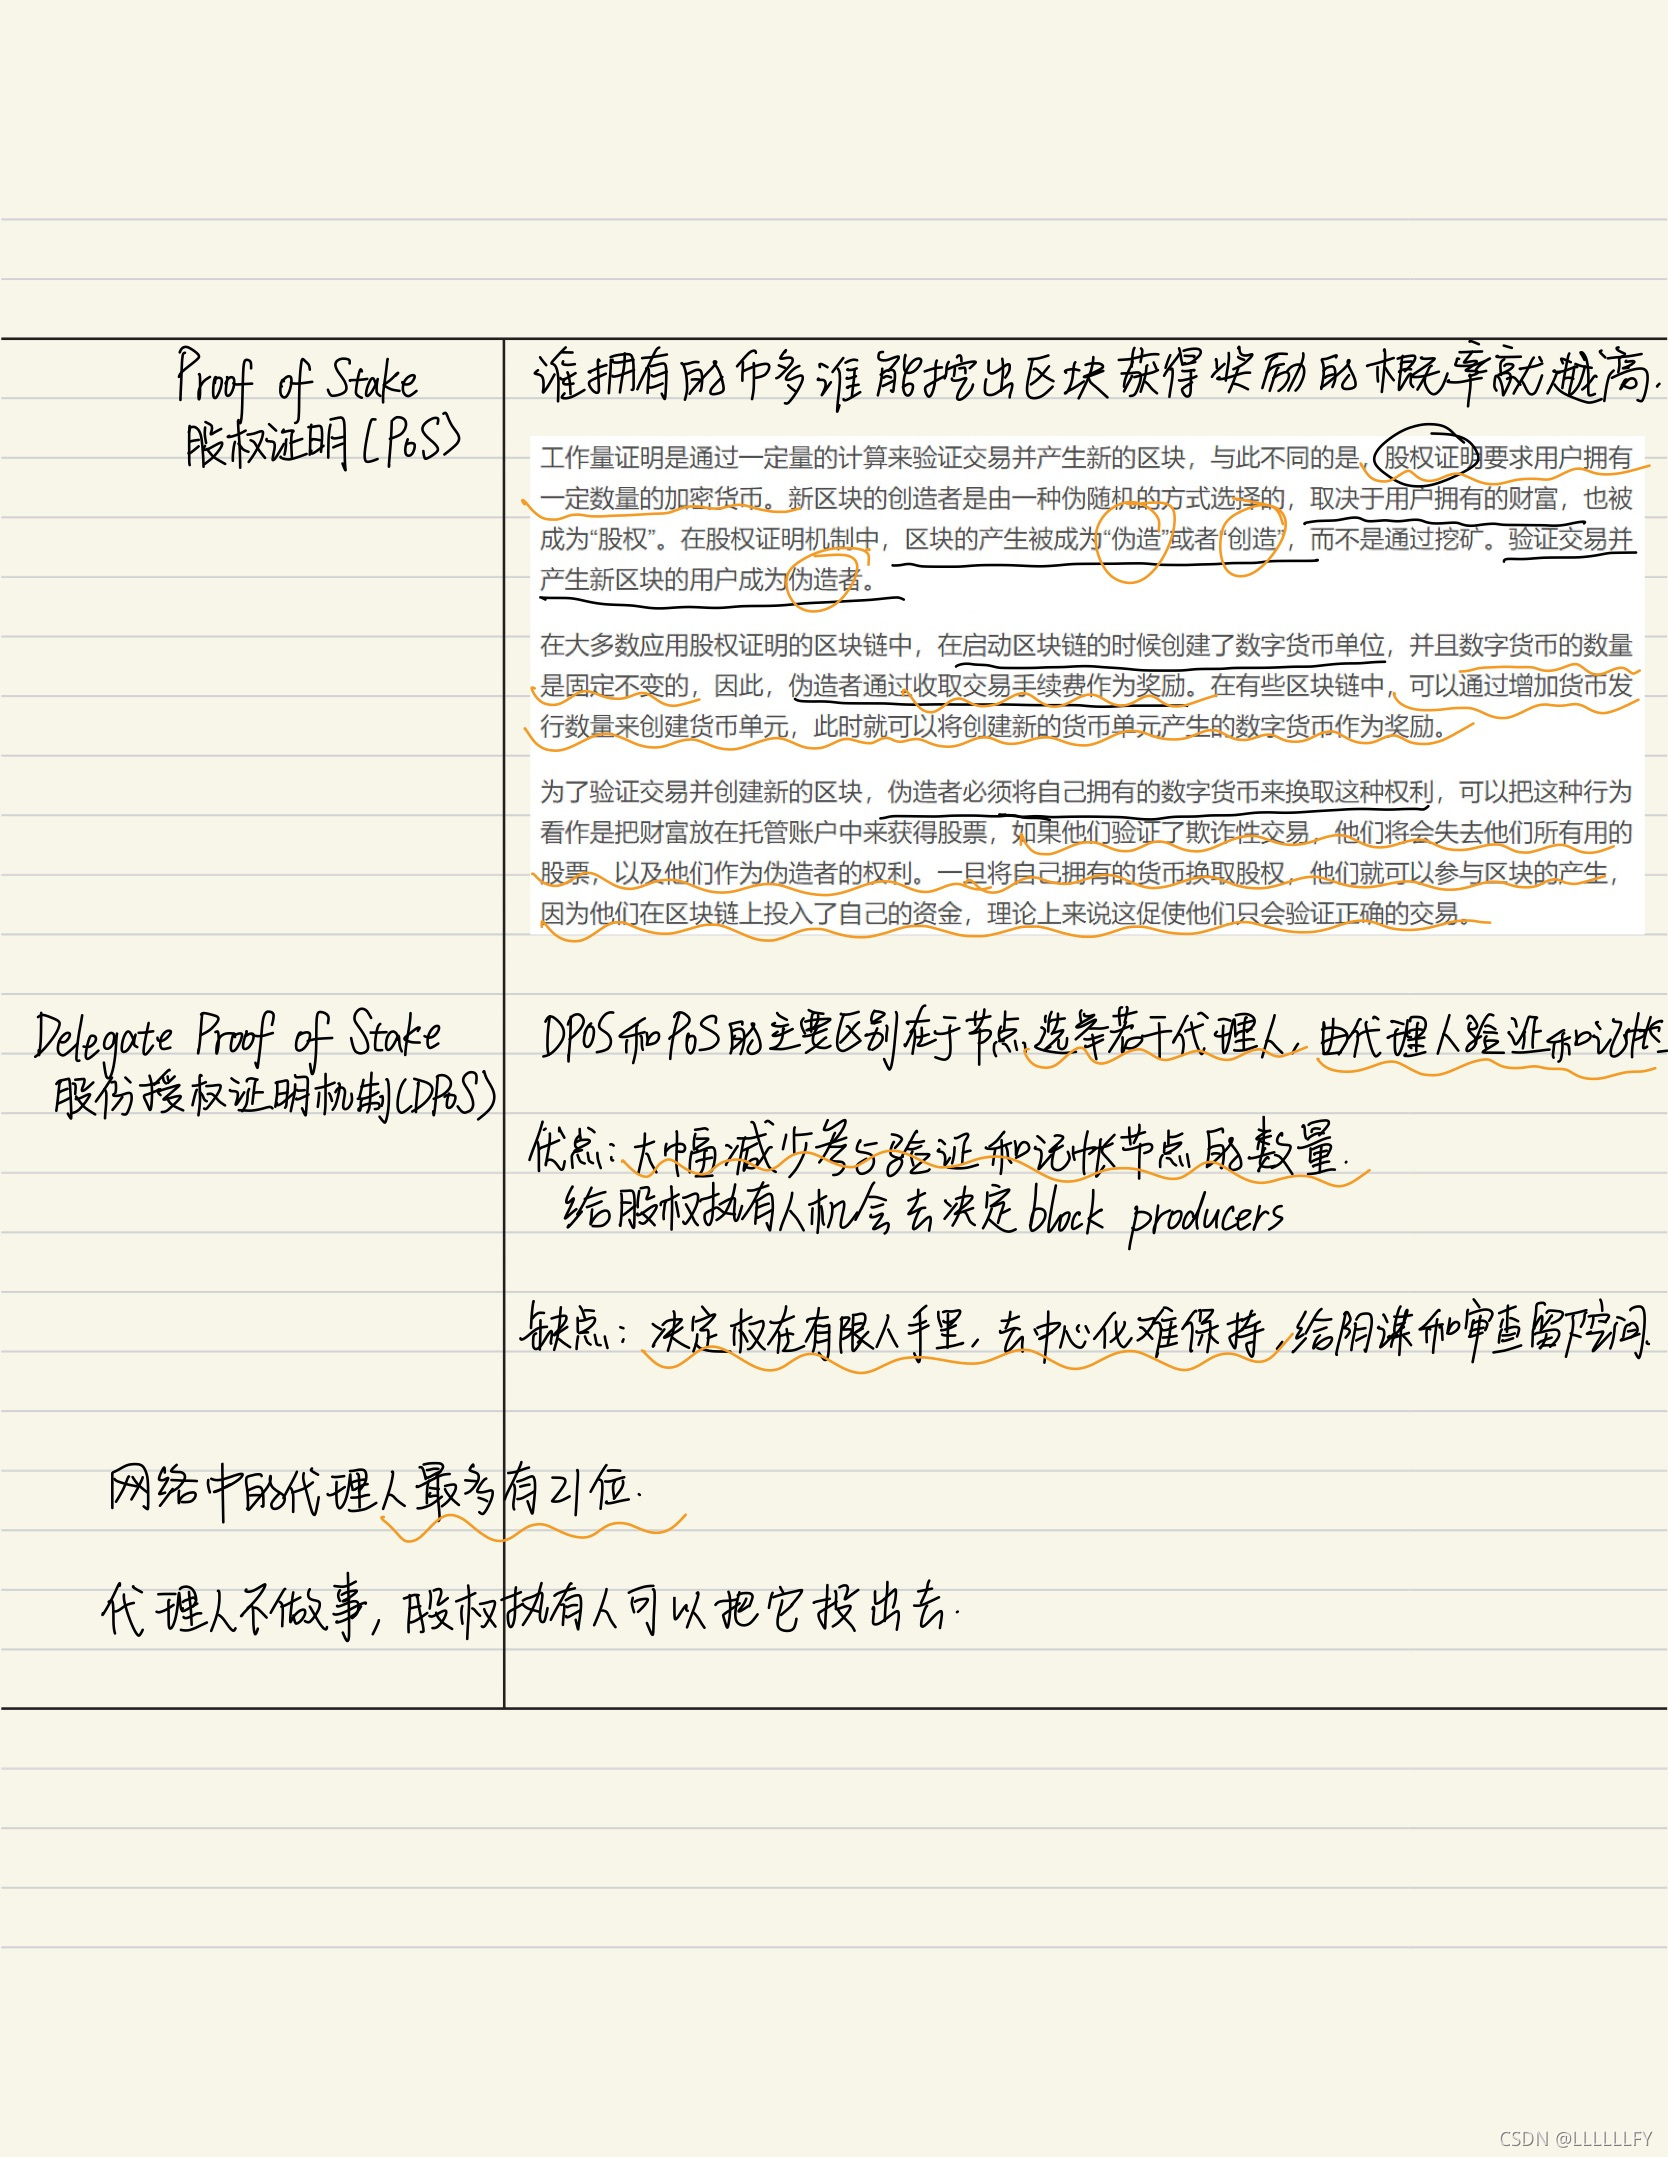 Proof of Stake
股权证明(PoS)
谁拥有的币多谁能挖出区块获得奖励的概率就越高.
工作量证明是通过一定量的计算来验证交易并产生新的区块，与此不同的是，股权证明要求用户拥有
一定数量的加密货币。新区块的创造者是由一种伪随机的方式选择的，取决于用户拥有的财富，也被
成为“股权”。在股权证明机制中，区块的产生被成为“伪造”或者“创造”，而不是通过挖矿。验证交易并
产生新区块的用户成为伪造者。
在大多数应用股权证明的区块链中，在启动区块链的时候创建了数字货币单位，并且数字货币的数量
是固定不变的，因此，伪造者通过收取交易手续费作为奖励。在有些区块链中，可以通过增加货币发
行数量来创建货币单元，此时就可以将创建新的货币单元产生的数字货币作为奖励。
为了验证交易并创建新的区块，伪造者必须将自己拥有的数字货币来换取这种权利，可以把这种行为
看作是把财富放在托管账户中来获得股票，如果他们验证了欺诈性交易，他们将会失去他们所有用的
股票，以及他们作为伪造者的权利。一旦将自己拥有的货币换取股权，他们就可以参与区块的产生，
因为他们在区块链上投入了自己的资金，理论上来说这促使他们只会验证正确的交易。
Delegate Proof of Stake
股份授权证明机制(DPoS)
DPoS和PoS的主要区别在于节点选举若干代理人, 由代理人验证和记帐
优点: 大幅减少参与验证和记帐节点的数量.
给股权执有人机会去决定block producers
缺点: 决定权在有限人手里, 去中心化难保持, 给阴谋和审查留下空间.
网络中的代理人最多有21位.
代理人不做事, 股权执有人可以把它投出去.
CSDN @LLLLLLFY